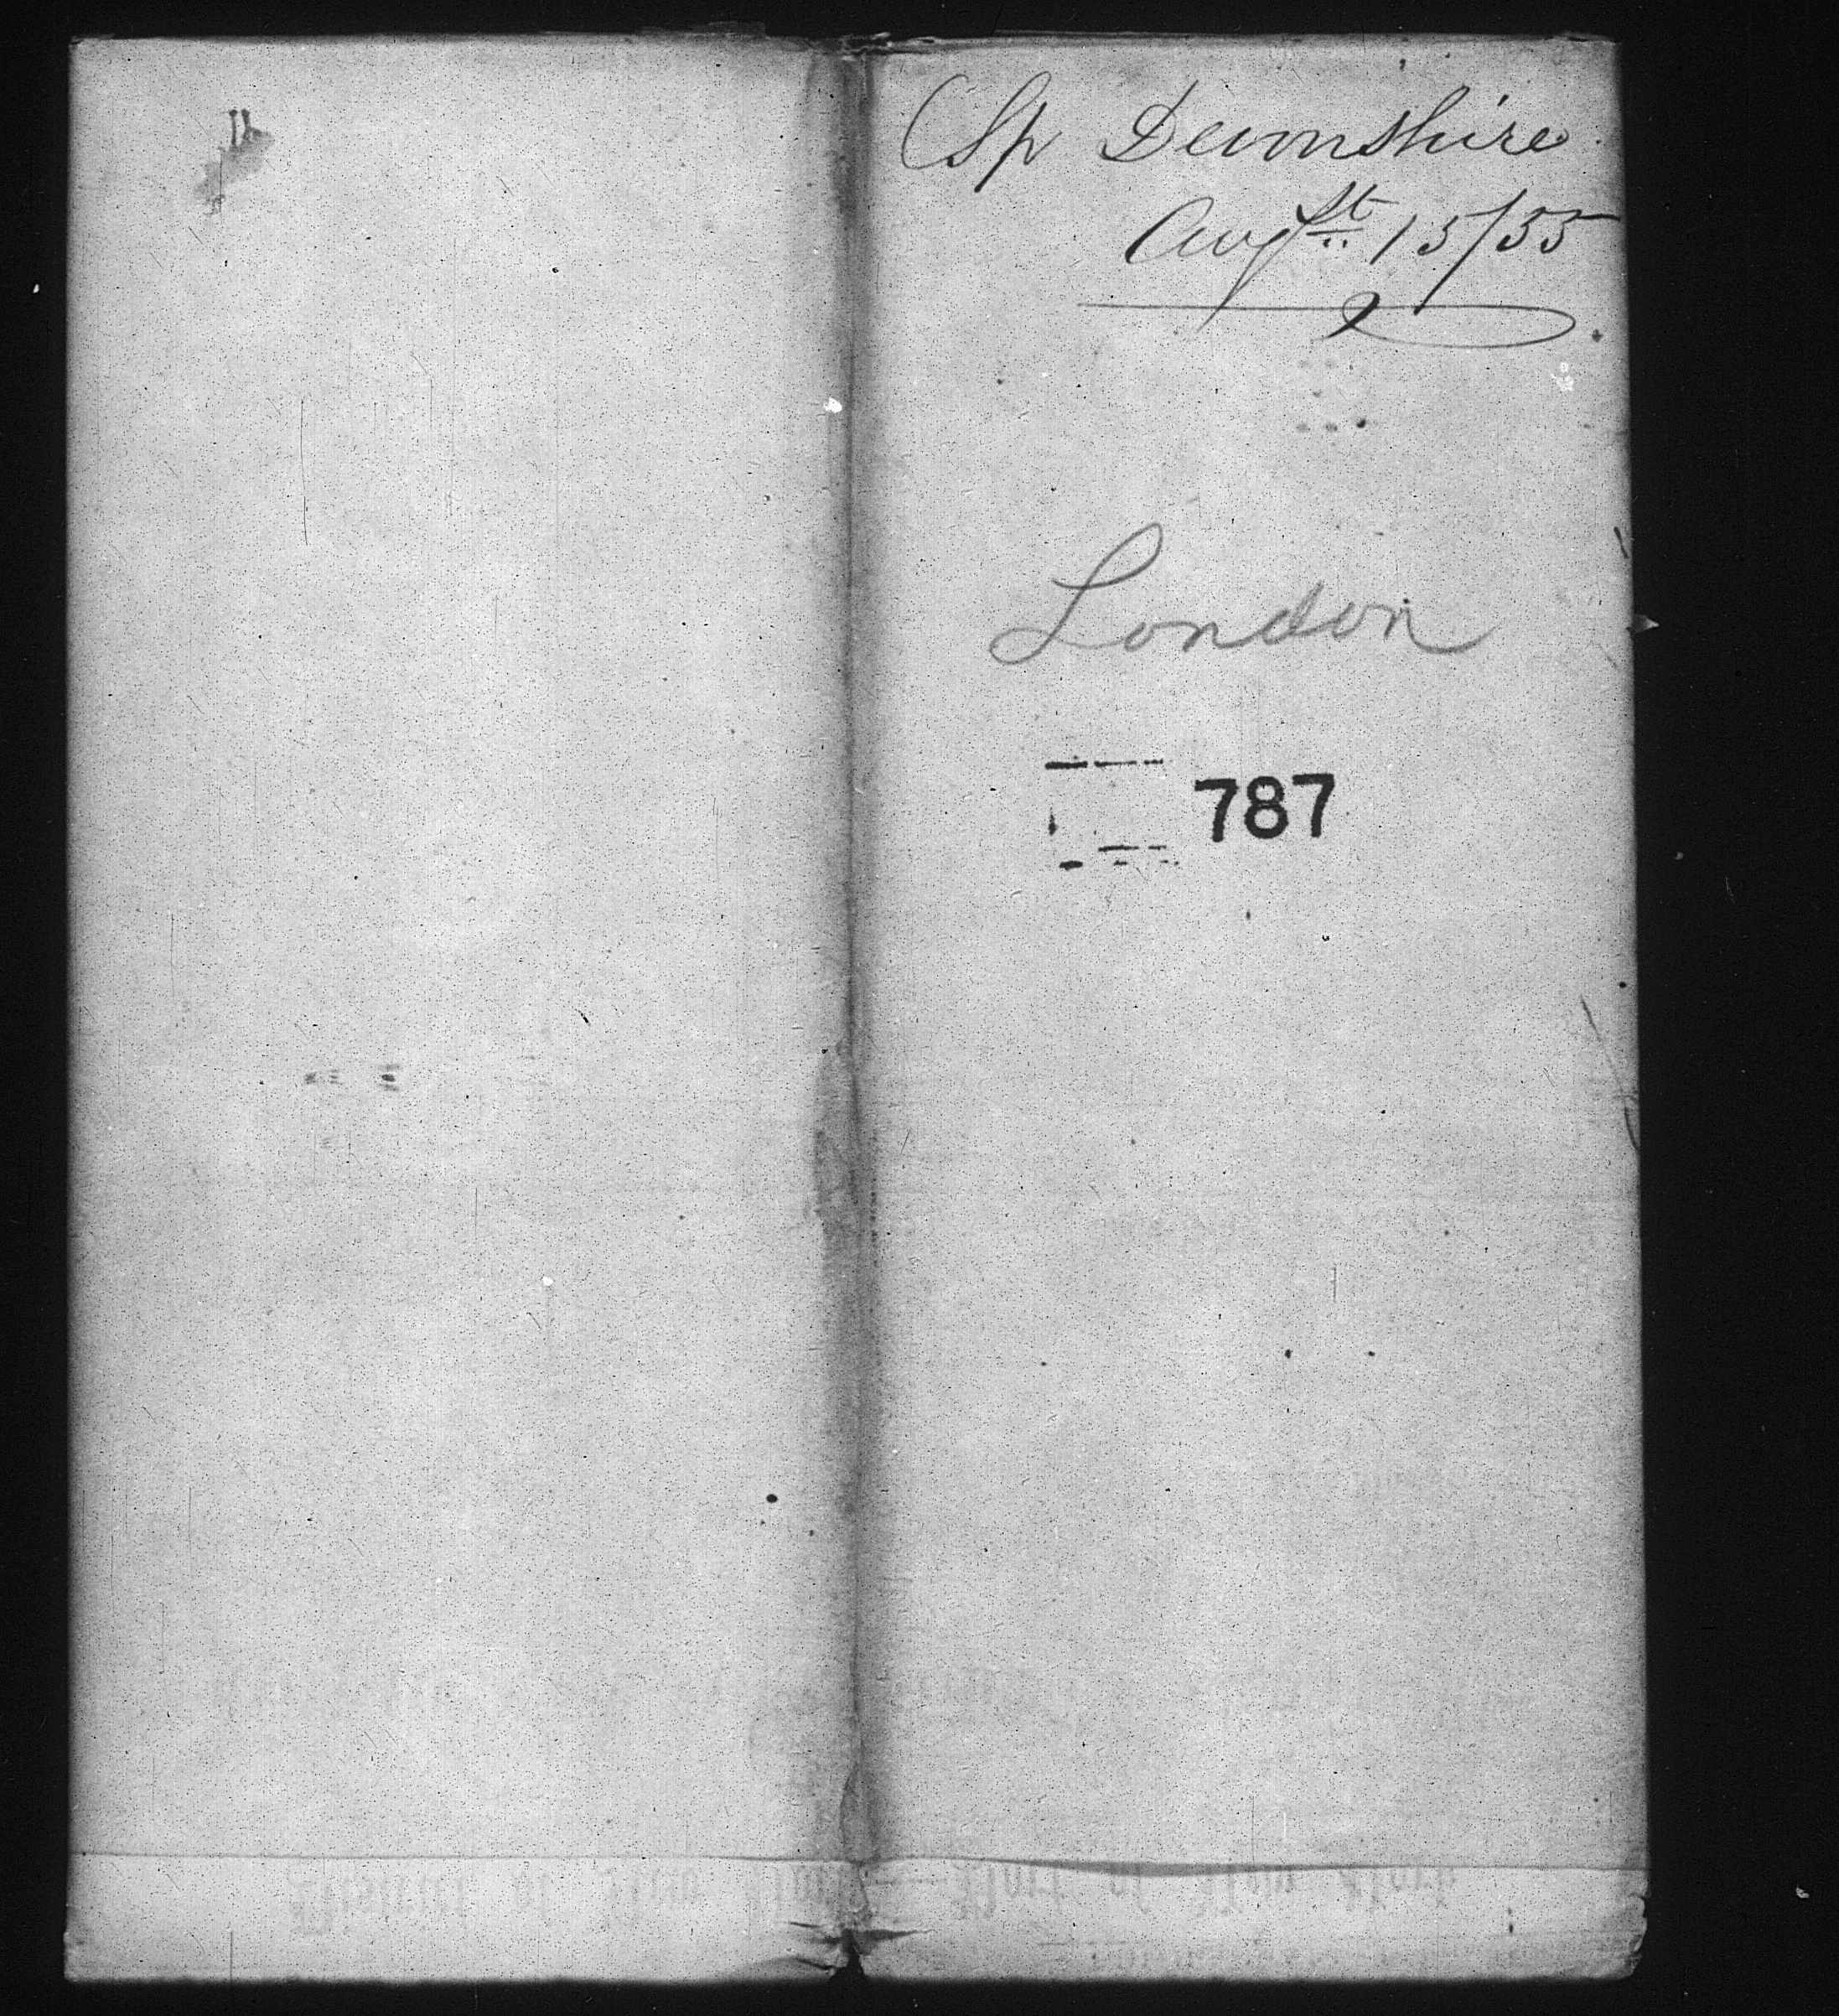 Sp Devonshire
Augst 15/55
London
787